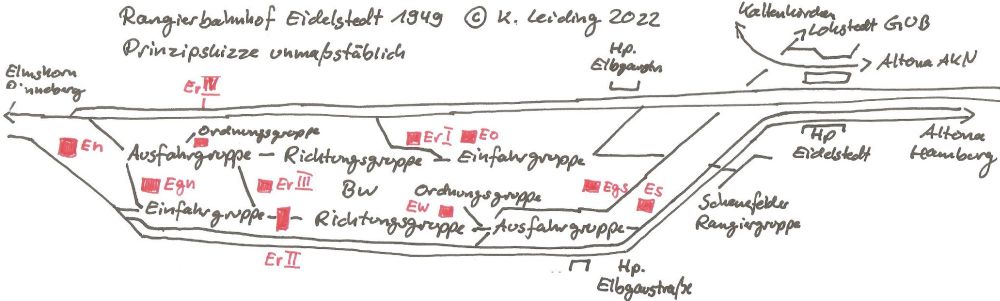 Rangierbahnhof Eidelstedt 1949 © K. Leiding 2022
Prinzipskizze unmaßstäblich
Kaltenkirchen
Lokstedt GUB
Altona AKN
Hp.
Elbgaustr.
Elmshorn
Pinneberg
Er IV
En
Ordnungsgruppe
Ausfahrgruppe
Richtungsgruppe
Er I
Eo
Einfahrgruppe
Hp
Eidelstedt
Altona
Hamburg
Egn
Er III
Bw
Ordnungsgruppe
Egs
Es
Einfahrgruppe
Richtungsgruppe
Ew
Ausfahrgruppe
Schenefelder
Rangiergruppe
Er II
Hp.
Elbgaustraße